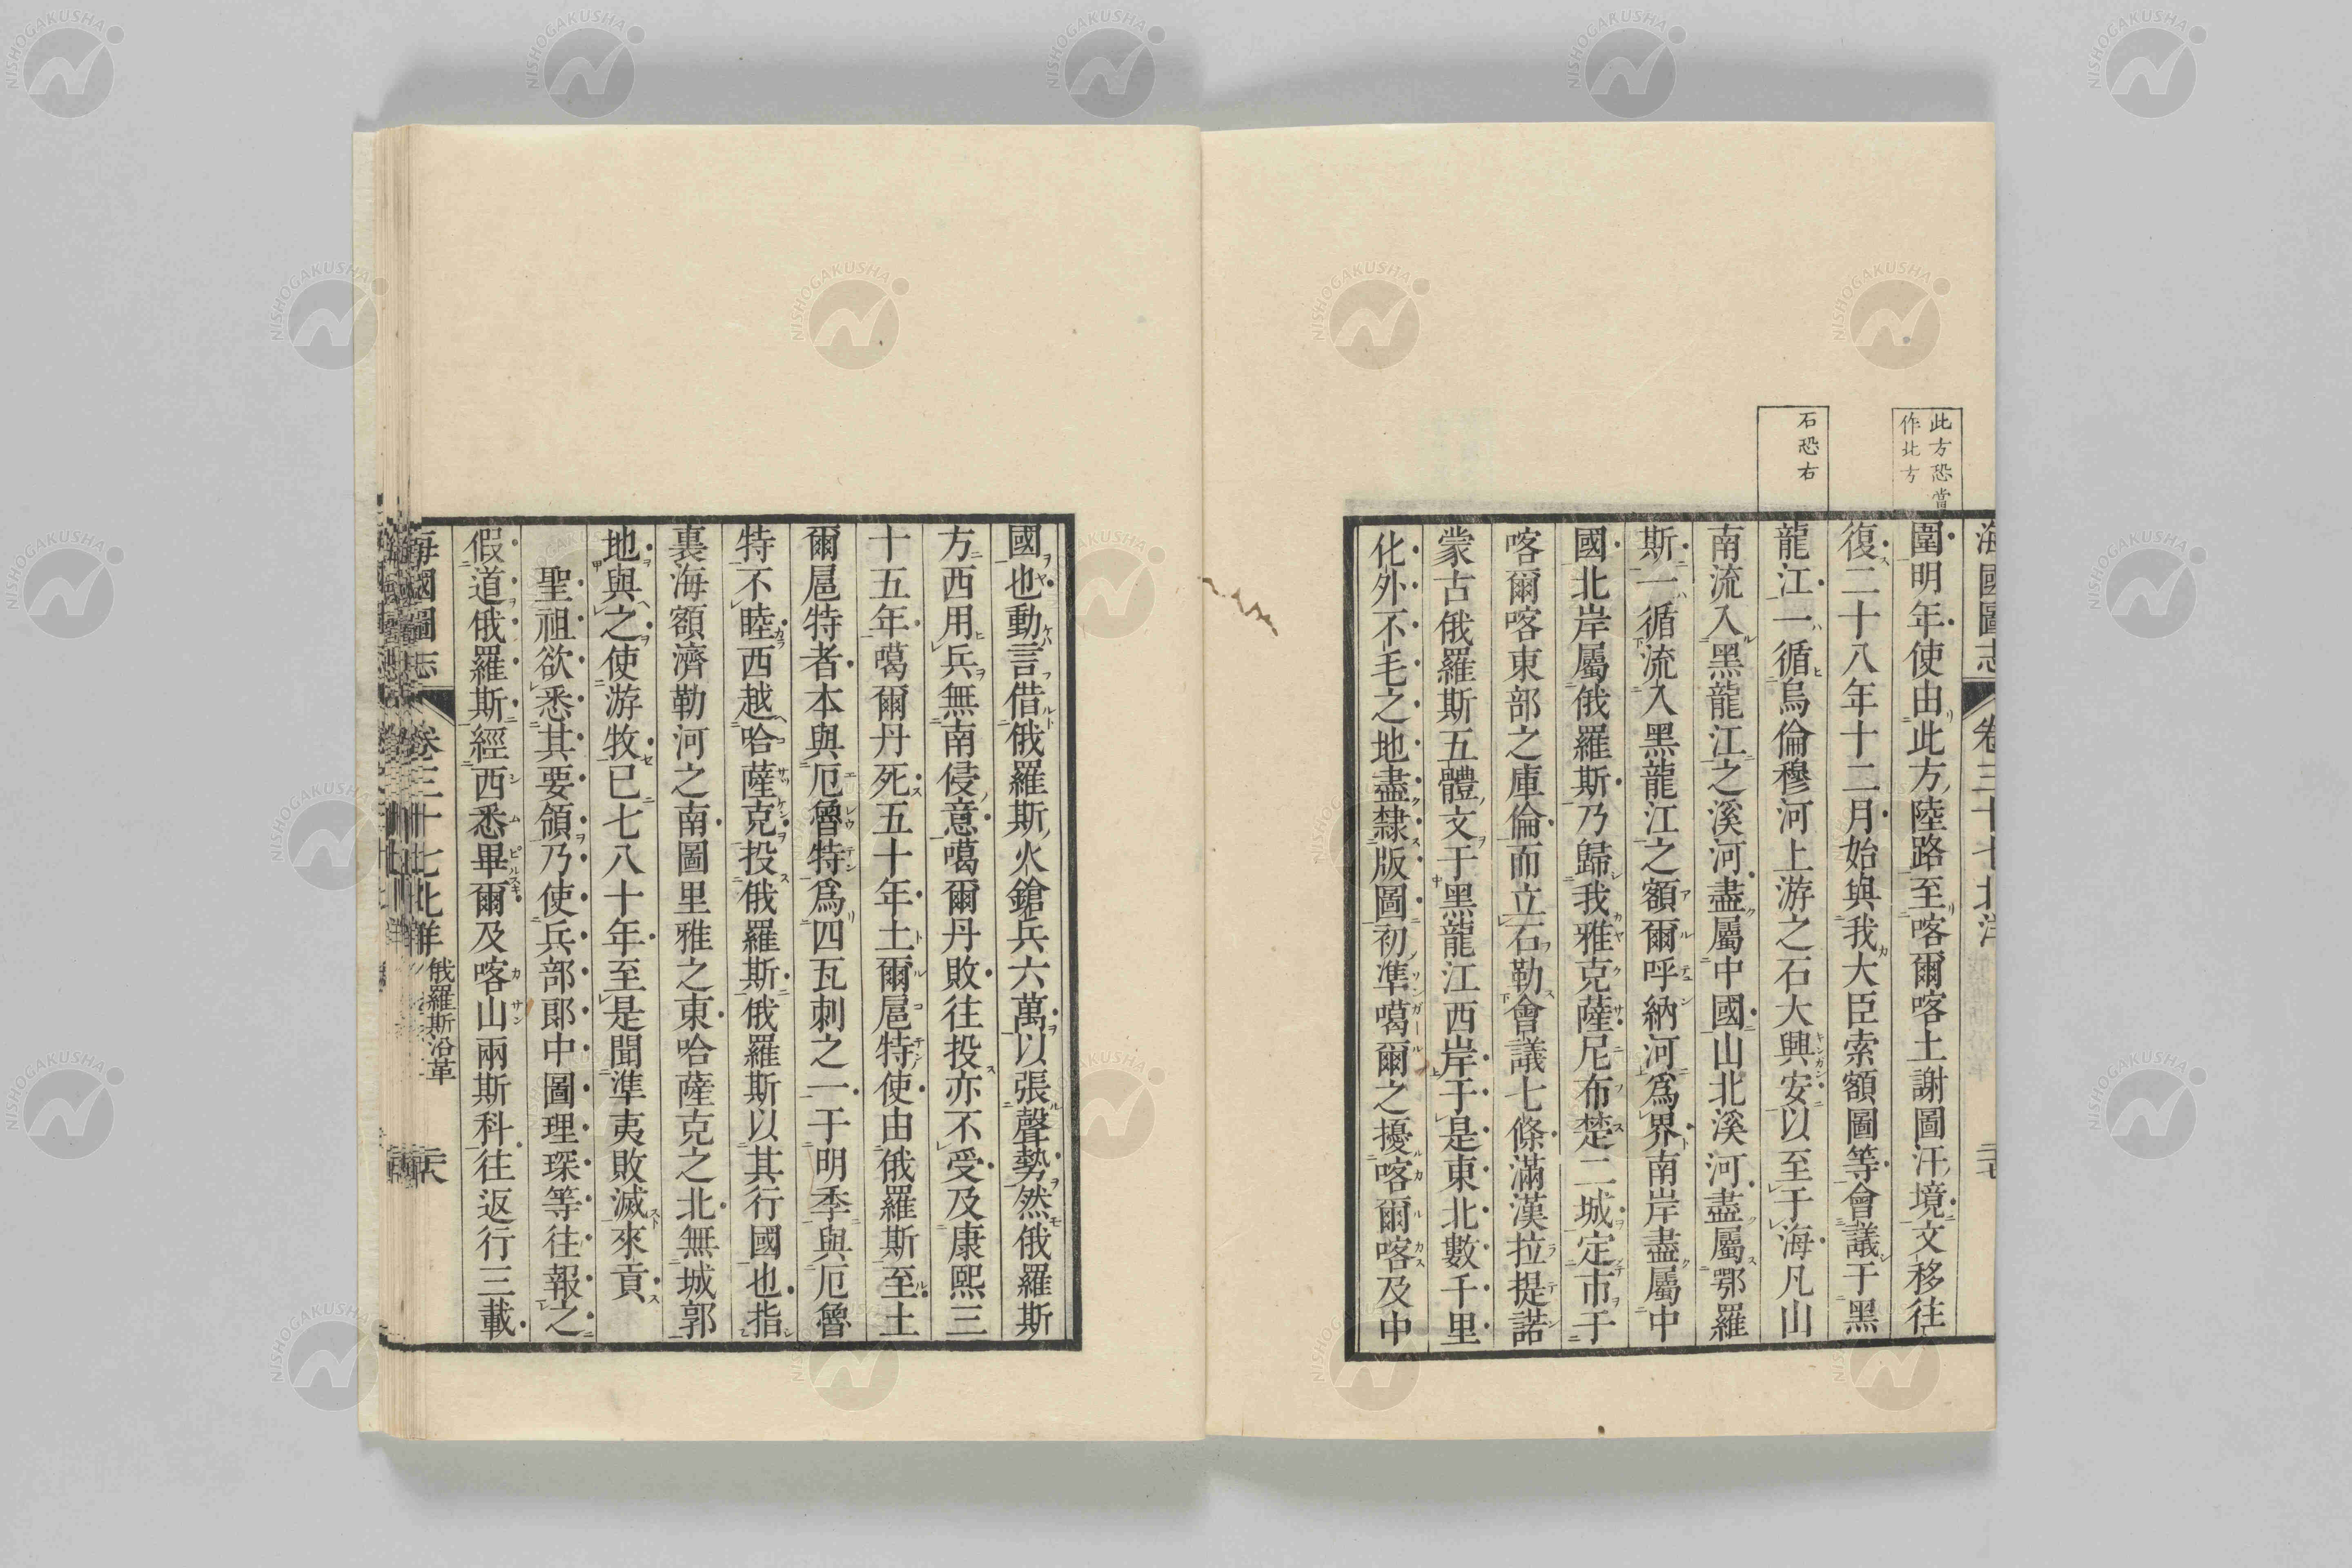 海國圖志 卷三十七 北洋
此方恐當
作北方
石恐右
圍明年使由此方陸路至喀爾喀土謝圖汗境文移往
復二十八年十二月始與我大臣索額圖等會議于黑
龍江一循烏倫穆河上游之石大興安以至于海凡山
南流入黑龍江之溪河盡屬中國山北溪河盡屬鄂羅
斯一循流入黑龍江之額爾呼納河爲界南岸盡屬中
國北岸屬俄羅斯乃歸我雅克薩尼布楚二城定市于
喀爾喀東部之庫倫而立石勒會議七條滿漢拉提諾
蒙古俄羅斯五體文于黑龍江西岸于是東北數千里
化外不毛之地盡隸版圖初準噶爾之擾喀爾喀及中
國也動言借俄羅斯火鎗兵六萬以張聲勢然俄羅斯
方西用兵無南侵意噶爾丹敗往投亦不受及康熙三
十五年噶爾丹死五十年土爾扈特使由俄羅斯至土
爾扈特者本與厄魯特爲四瓦刺之一于明季與厄魯
特不睦西越哈薩克投俄羅斯俄羅斯以其行國也指
裏海額濟勒河之南圖里雅之東哈薩克之北無城郭
地與之使游牧已七八十年至是聞準夷敗滅來貢
聖祖欲悉其要領乃使兵部郎中圖理琛等往報之
假道俄羅斯經西悉畢爾及喀山兩斯科往返行三載
海國圖志 卷三十七 北洋 俄羅斯沿革 二十八